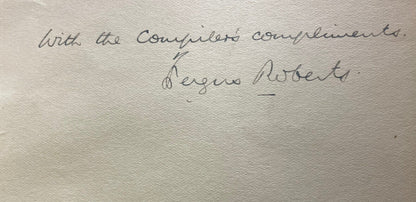 With the Compiler's compliments.
Fergus Roberts.